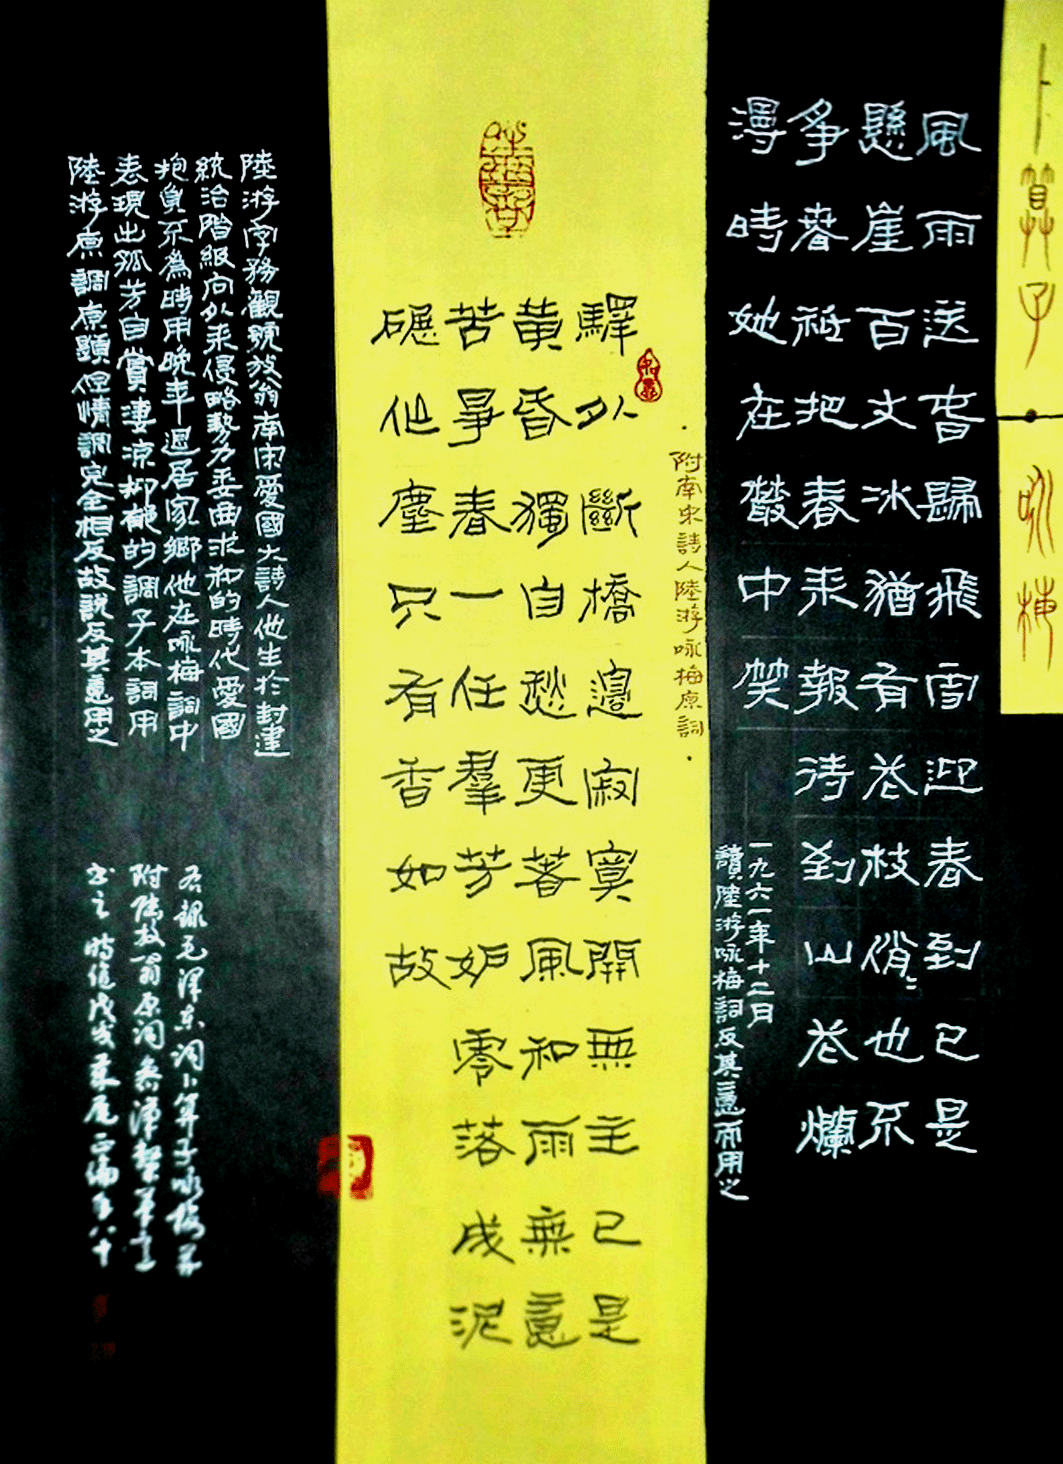 卜算子·咏梅
風雨送春歸飛雪迎春到已是
懸崖百丈冰猶有花枝俏〻也不
爭春祗把春來報待到山花爛
漫時她在叢中笑
一九六一年十二月
讀陸游咏梅詞反其意而用之
附南宋詩人陸游咏梅原詞
驛外斷橋邊寂寞開無主已是
黄昏獨自愁更著風和雨無意
苦爭春一任羣芳妒零落成泥
碾作塵只有香如故
陸游字務觀號放翁南宋愛國大詩人他生於封建
統治階級向外來侵略勢力委曲求和的時代愛國
抱負不為時用晚年退居家鄉他在咏梅詞中
表現出孤芳自賞淒凉抑郁的調子本詞用
陸游原調原題但情調完全相反故說反其意用之
右録毛澤東詞卜算子咏梅并
附陸放翁原詞
書之時值戊戌年八十